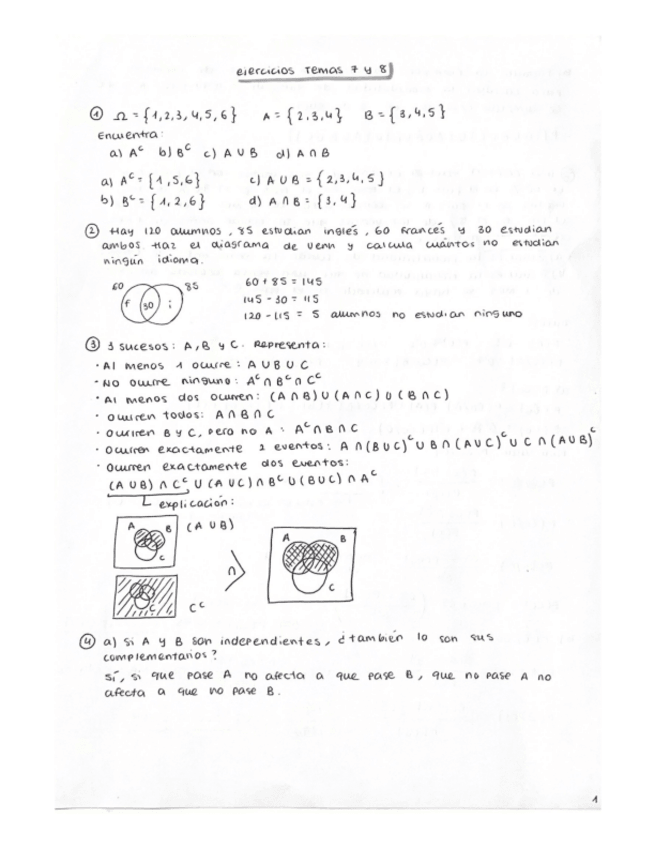 ejercicios Temas 7 y 8
① Ω = {1,2,3,4,5,6} A = {2,3,4} B = {3,4,5}
Encuentra:
a) Aᶜ b) Bᶜ c) A ∪ B d) A ∩ B
a) Aᶜ = {1,5,6} c) A ∪ B = {2,3,4,5}
b) Bᶜ = {1,2,6} d) A ∩ B = {3,4}
② Hay 120 alumnos, 85 estudian inglés, 60 francés y 30 estudian
ambos. Haz el diagrama de venn y calcula cuántos no estudian
ningún idioma.
60 85
f 30 i
60 + 85 = 145
145 - 30 = 115
120 - 115 = 5 alumnos no estudian ninguno
③ 3 sucesos: A, B y C. Representa:
· Al menos 1 ocurre: A ∪ B ∪ C
· No ocurre ninguno: Aᶜ ∩ Bᶜ ∩ Cᶜ
· Al menos dos ocurren: (A ∩ B) ∪ (A ∩ C) ∪ (B ∩ C)
· ocurren todos: A ∩ B ∩ C
· Ocurren B y C, pero no A: Aᶜ ∩ B ∩ C
· Ocurren exactamente 1 eventos: A ∩ (B ∪ C)ᶜ ∪ B ∩ (A ∪ C)ᶜ ∪ C ∩ (A ∪ B)ᶜ
· Ocurren exactamente dos eventos:
(A ∪ B) ∩ Cᶜ ∪ (A ∪ C) ∩ Bᶜ ∪ (B ∪ C) ∩ Aᶜ
explicación:
A B C (A ∪ B)
C Cᶜ
∩
A B C
④ a) Si A y B son independientes, ¿también lo son sus
complementarios?
Sí, si que pase A no afecta a que pase B, que no pase A no
afecta a que no pase B.
1